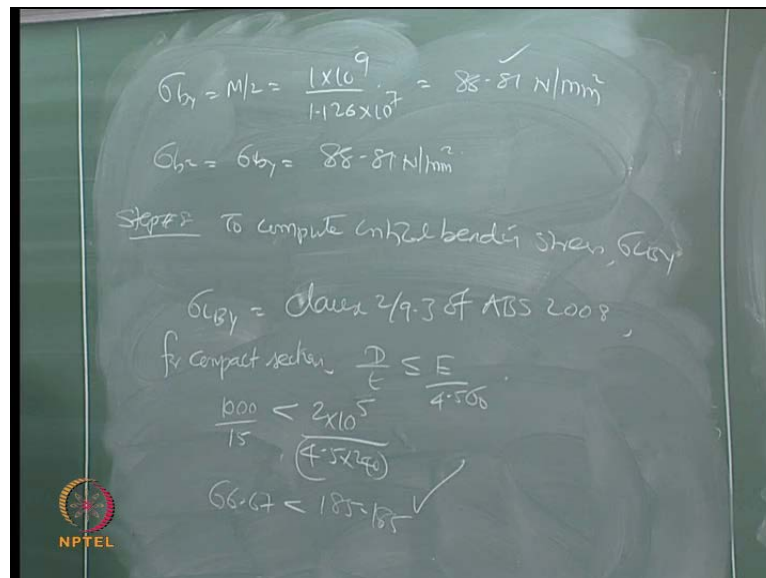 σby = M/Z = 1×10^9 / 1.126×10^7 = 88.81 N/mm²
σbz = σby = 88.81 N/mm²
Step#8 To compute critical bending stress, σCBy
σCBy = Clause 2/9.3 of ABS 2008,
for compact section, D/t ≤ E/4.5σ0
1000/15 < 2×10^5/(4.5×240)
66.67 < 185.185 ✓
NPTEL